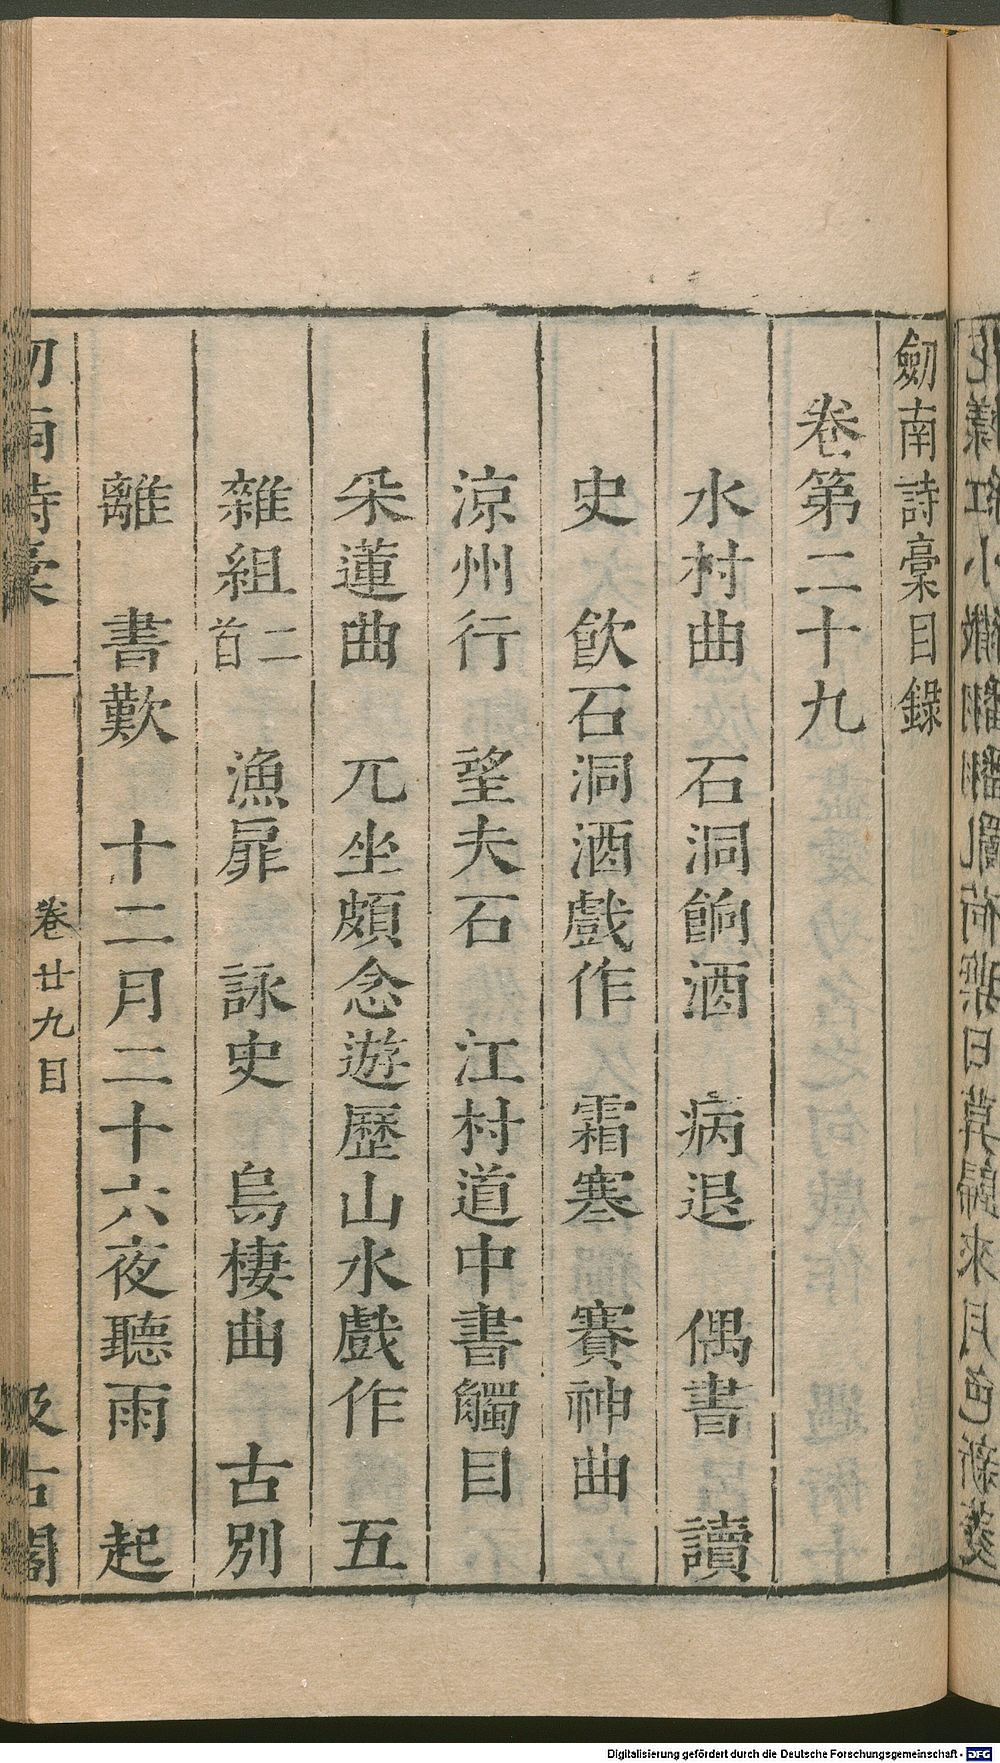 劒南詩稾目錄
卷第二十九
水村曲 石洞餉酒 病退 偶書 讀
史 飲石洞酒戲作 霜寒 賽神曲
涼州行 望夫石 江村道中書觸目
采蓮曲 兀坐頗念遊歷山水戲作 五
雜組二首 漁扉 詠史 烏棲曲 古別
離 書歎 十二月二十六夜聽雨 起
南詩稾 卷廿九目 汲古閣
Digitalisierung gefördert durch die Deutsche Forschungsgemeinschaft - DFG